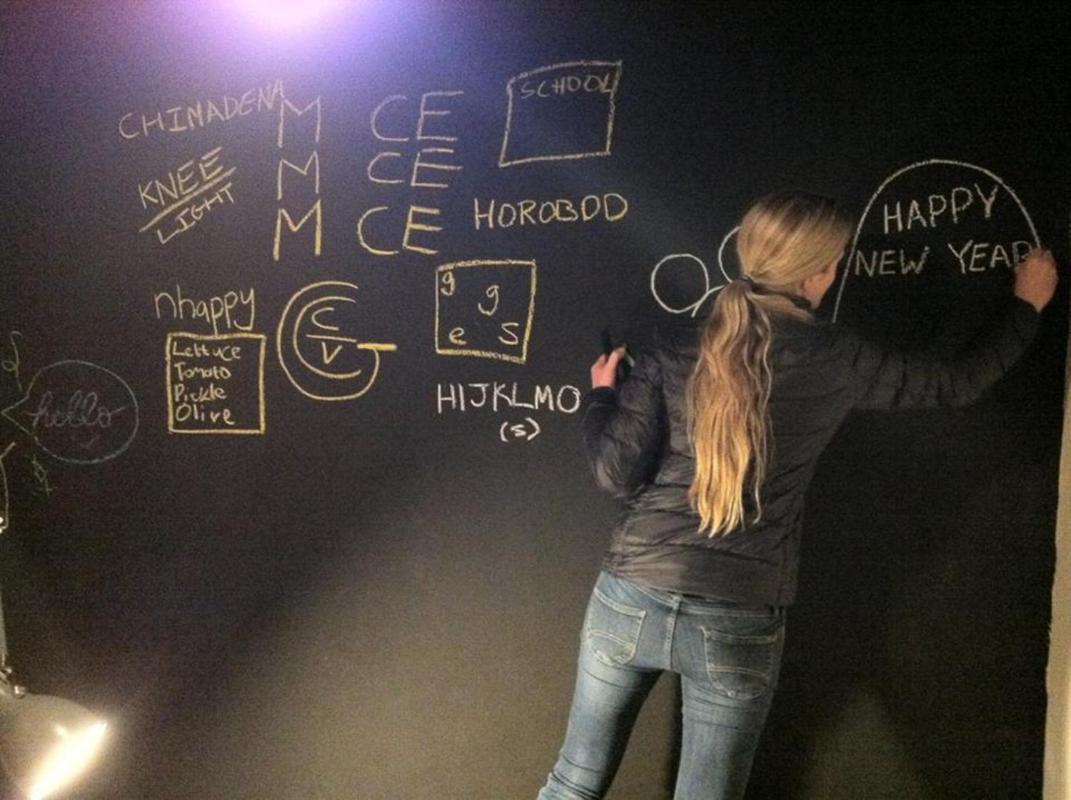 CHIMADENA
M CE
M CE
M CE
SCHOOL
KNEE
LIGHT
HOROBOD
HAPPY
NEW YEAR
nhappy
Lettuce
Tomato
Pickle
Olive
C
V
g
g
e s
HIJKLMO
(s)
hello